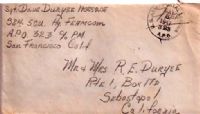 Sgt. Dave Duryee
324 SCU. Hq
APO 323 % PM
San Francisco Calif
A.P.O.
Mr & Mrs R. E. Duryee
Rte 1, Box
Sebastopol
California